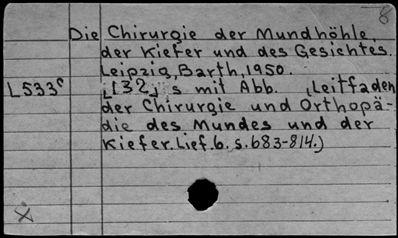 8
Die Chirurgie der Mundhöhle,
der Kiefer und des Gesichtes.
Leipzig, Barth, 1950.
L533c [132] s mit Abb. (Leitfaden
der Chirurgie und Orthopä-
die des Mundes und der
Kiefer. Lief. 6. s. 683-814.)